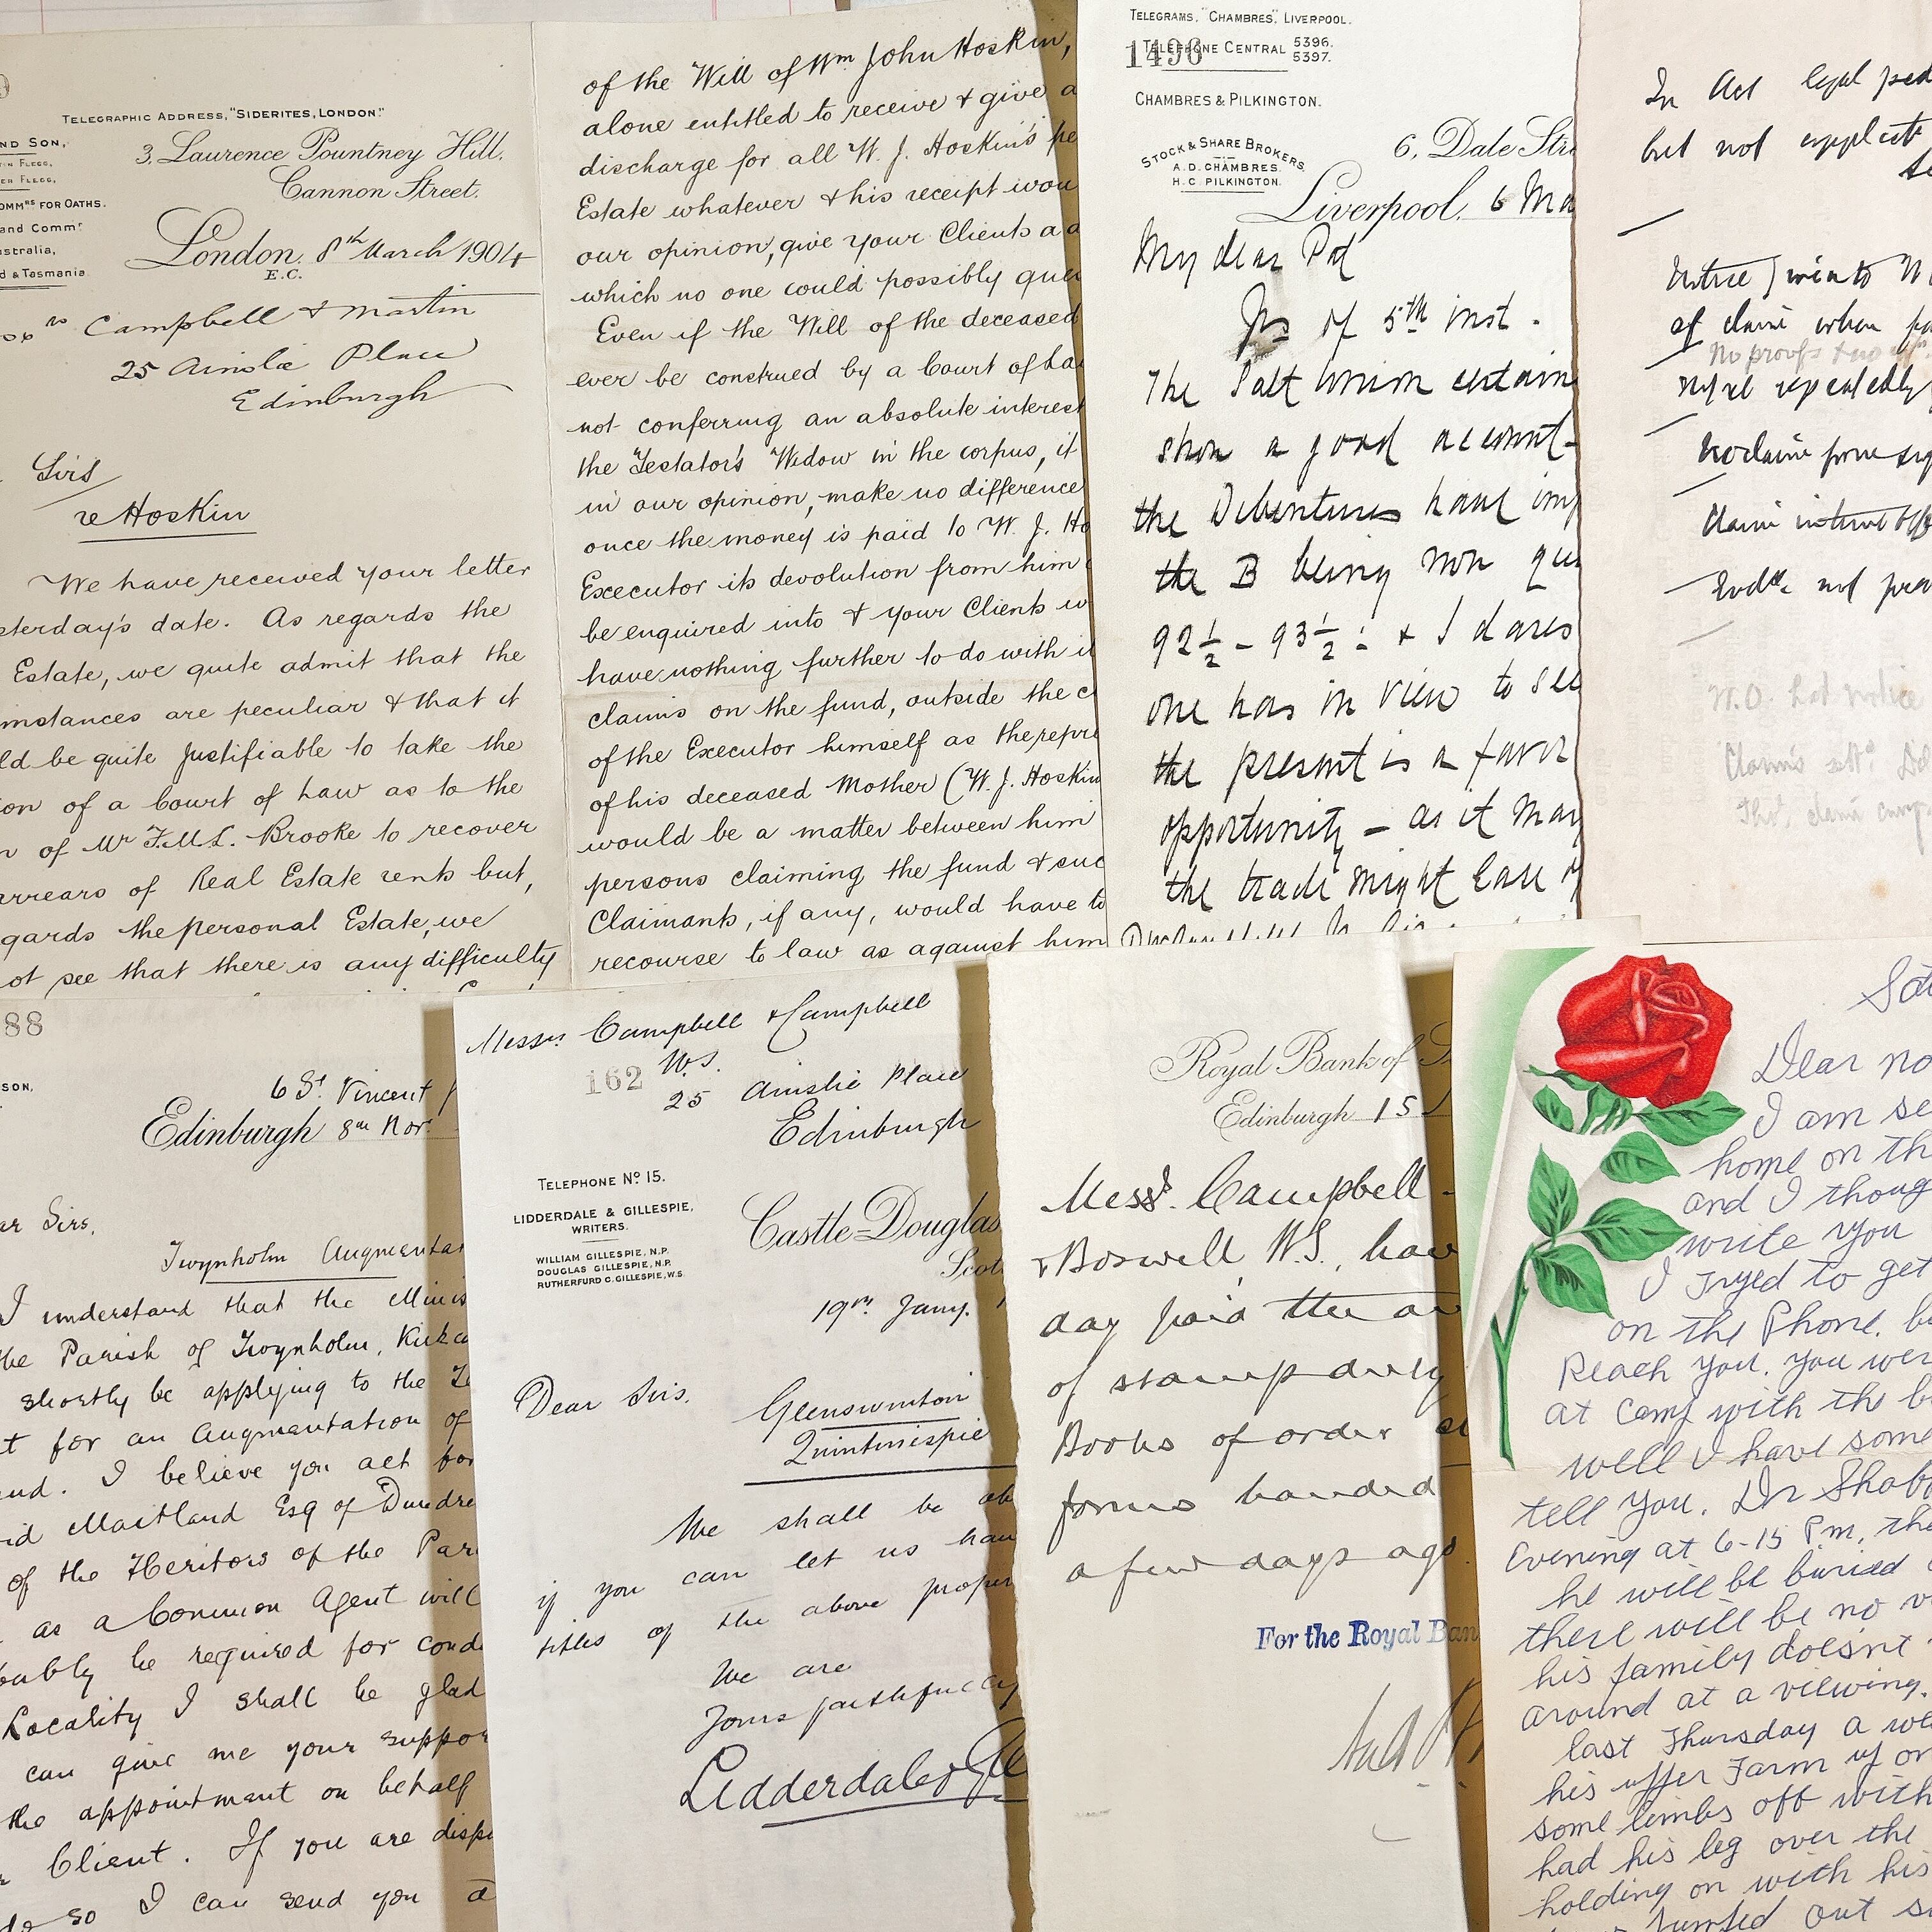 TELEGRAPHIC ADDRESS, "SIDERITES, LONDON."
ND SON,
3, Laurence Pountney Hill,
Cannon Street,
OMMRS FOR OATHS.
and Commr
ustralia,
d & Tasmania
London, 8th March 1904
E.C.
Campbell & Martin
25 Ainslie Place
Edinburgh
Sirs
re Hoskin
We have received your letter
sterday's date. As regards the
Estate, we quite admit that the
mstances are peculiar & that it
ld be quite justifiable to take the
on of a Court of Law as to the
of Mr F.M.L. Brooke to recover
arrears of Real Estate rents but,
gards the personal Estate, we
ot see that there is any difficulty
of the Will of Wm John Hoskin,
alone entitled to receive & give a
discharge for all W. J. Hoskin's pe
Estate whatever & his receipt wou
our opinion, give your Clients a
which no one could possibly que
Even if the Will of the deceased
ever be construed by a Court of La
not conferring an absolute interest
the Testator's Widow in the corpus, it
in our opinion, make no difference
once the money is paid to W. J. Ho
Executor its devolution from him
be enquired into & your Clients w
have nothing further to do with it
claims on the fund, outside the c
of the Executor himself as the repre
of his deceased Mother (W. J. Hoskin
would be a matter between him
persons claiming the fund & suc
Claimants, if any, would have to
recourse to law as against him
TELEGRAMS, "CHAMBRES", LIVERPOOL.
1496
TELEPHONE CENTRAL 5396. 5397.
CHAMBRES & PILKINGTON.
STOCK & SHARE BROKERS
A. D. CHAMBRES.
H. C. PILKINGTON.
6, Dale Stre
Liverpool, 6 Ma
My dear
of 5th inst.
The Salt Union certain
show a good account-
the Debentures have imp
the B being now quo
92½ - 93½ : & I dares
one has in view to sell
the present is a favor
opportunity - as it may
the trade might
In Act legal
but not
Notice
of claim when
No proof
repeatedly
claim
not
W.O. had notice
88
SON,
6 St. Vincent
Edinburgh 8th Nov.
ar Sirs,
Twynholm Augmenta
I understand that the Minis
the Parish of Twynholm, Kirkcu
shortly be applying to the Te
t for an Augmentation of
end. I believe you act for
id Maitland Esq of Dundre
of the Heritors of the Par
as a Common Agent will
bably be required for cond
Locality I shall be glad
can give me your suppor
the appointment on behalf
Client. If you are dispo
so I can send you a
Messrs Campbell & Campbell
162
W.S.
25 Ainslie Place
Edinburgh
TELEPHONE No 15.
LIDDERDALE & GILLESPIE,
WRITERS.
WILLIAM GILLESPIE, N.P.
DOUGLAS GILLESPIE, N.P.
RUTHERFURD C. GILLESPIE, W.S.
Castle-Douglas
Scot
19th Jany.
Dear Sirs.
Glenswinton
Quintinespie
We shall be ob
if you can let us hav
titles of the above proper
We are
Yours faithfully
Lidderdale & Gil
Royal Bank of S
Edinburgh 15 J
Messrs. Campbell
& Boswell, W.S., have
day paid the
of stamp duty
Books of order
forms handed
a few days ago.
For the Royal Ban
Sat
Dear
I am se
home on th
and I thoug
write you
I tryed to get
on the Phone. b
Reach you. you wer
at Camp with the b
well I have some
tell you. Dr
Evening at 6-15 P.m, the
he will be buried
there will be no v
his family doesn't
around at a viewing.
last Thursday a we
his upper Farm
some limbs off with
had his leg over the
holding on with his
out